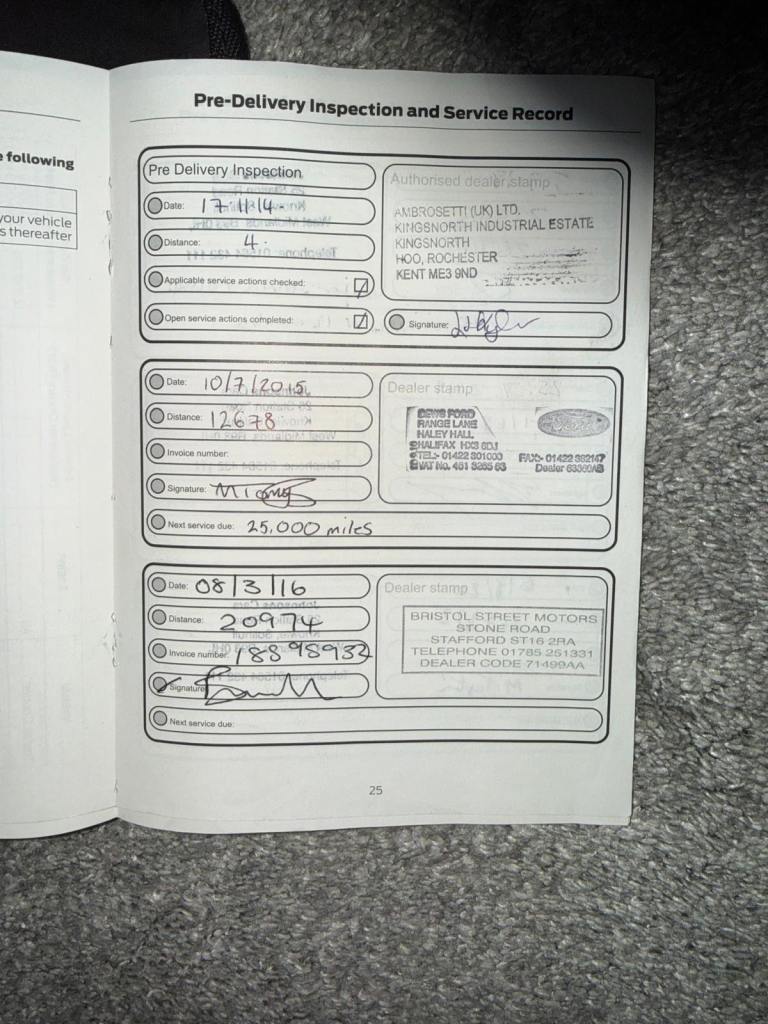 e following
your vehicle
s thereafter
Pre-Delivery Inspection and Service Record
Pre Delivery Inspection
Date: 17/1/14
Distance: 4.
Applicable service actions checked:
Open service actions completed:
Authorised dealer stamp
AMBROSETTI (UK) LTD.
KINGSNORTH INDUSTRIAL ESTATE
KINGSNORTH
HOO, ROCHESTER
KENT ME3 9ND
Signature:
Date: 10/7/2015
Distance: 12678
Invoice number:
Signature:
Next service due: 25,000 miles
Dealer stamp
DEWS FORD
RANGE LANE
HALEY HALL
HALIFAX HX3 6DJ
TEL:- 01422 301000 FAX:- 01422 382147
VAT No. 461 3265 63 Dealer
Ford
Date: 08/3/16
Distance: 20974
Invoice number: 18898932
Signature:
Next service due:
Dealer stamp
BRISTOL STREET MOTORS
STONE ROAD
STAFFORD ST16 2RA
TELEPHONE 01785 251331
DEALER CODE 71499AA
25